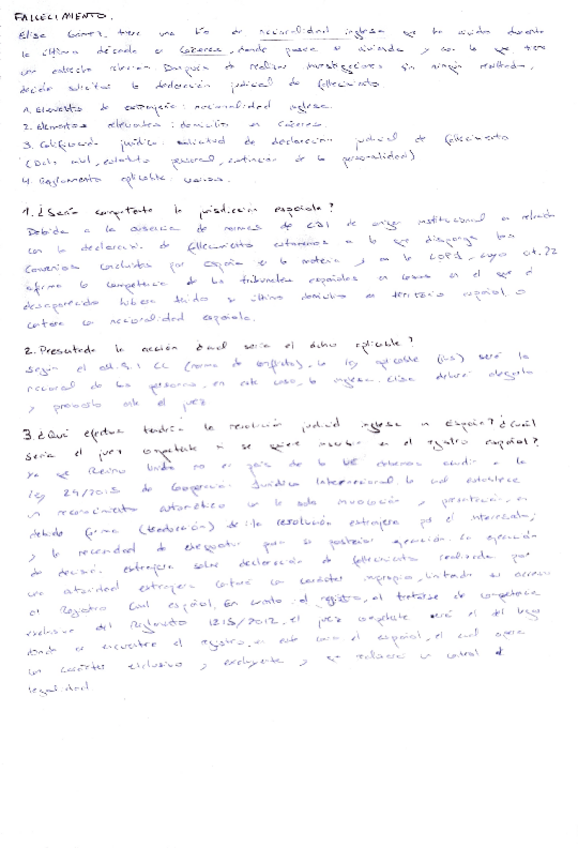 FALLECIMIENTO.
Elisa Gómez, tiene una tío de nacionalidad inglesa que ha vivido durante
la última década en Cáceres, donde posee su vivienda y con la que tiene
una estrecha relación. Después de realizar investigaciones sin ningún resultado,
decide solicitar la declaración judicial de fallecimiento
1. Elementos de extranjería: nacionalidad inglesa.
2. Elementos relevantes: domicilio en Cáceres.
3. Calificación jurídica: solicitud de declaración judicial de fallecimiento
(Dcho civil, estatuto personal, extinción de la personalidad)
4. Reglamento aplicable: varios.
1. ¿Sería competente la jurisdicción española?
Debido a la ausencia de normas de CJI de origen institucional en relación
con la declaración de fallecimiento estaremos a lo que dispongan los
convenios concluidos por España en la materia y en la LOPJ, cuyo art. 22
afirma la competencia de los tribunales españoles en casos en el que el
desaparecido hubiera tenido su último domicilio en territorio español o
contara con nacionalidad española.
2. Presentada la acción ¿cuál sería el dcho aplicable?
Según el art. 9.1 CC (norma de conflicto), la ley aplicable será la
nacional de las personas, en este caso, la inglesa. Elisa deberá alegarlo
y probarlo ante el juez
3. ¿Qué efectos tendría la resolución judicial inglesa en España? ¿Cuál
sería el juez competente si se quiere inscribir en el registro español?
Ya que Reino Unido no es país de la UE debemos acudir a la
ley 29/2015 de Cooperación Jurídica Internacional la cual establece
un reconocimiento automático con la sola invocación y presentación, en
debida forma (traducción) de la resolución extranjera por el interesado;
y la necesidad de exequatur para su posterior ejecución. La ejecución
de decisión extranjera sobre declaración de fallecimiento realizada por
una autoridad extranjera contará con carácter impropio, limitada su acceso
al Registro Civil español. En cuanto al registro, al tratarse de competencia
exclusiva del Reglamento 1215/2012, el juez competente será el del lugar
donde se encuentre el registro, en este caso el español, el cual opera
con carácter exclusivo y excluyente y se realizará un control de
legalidad